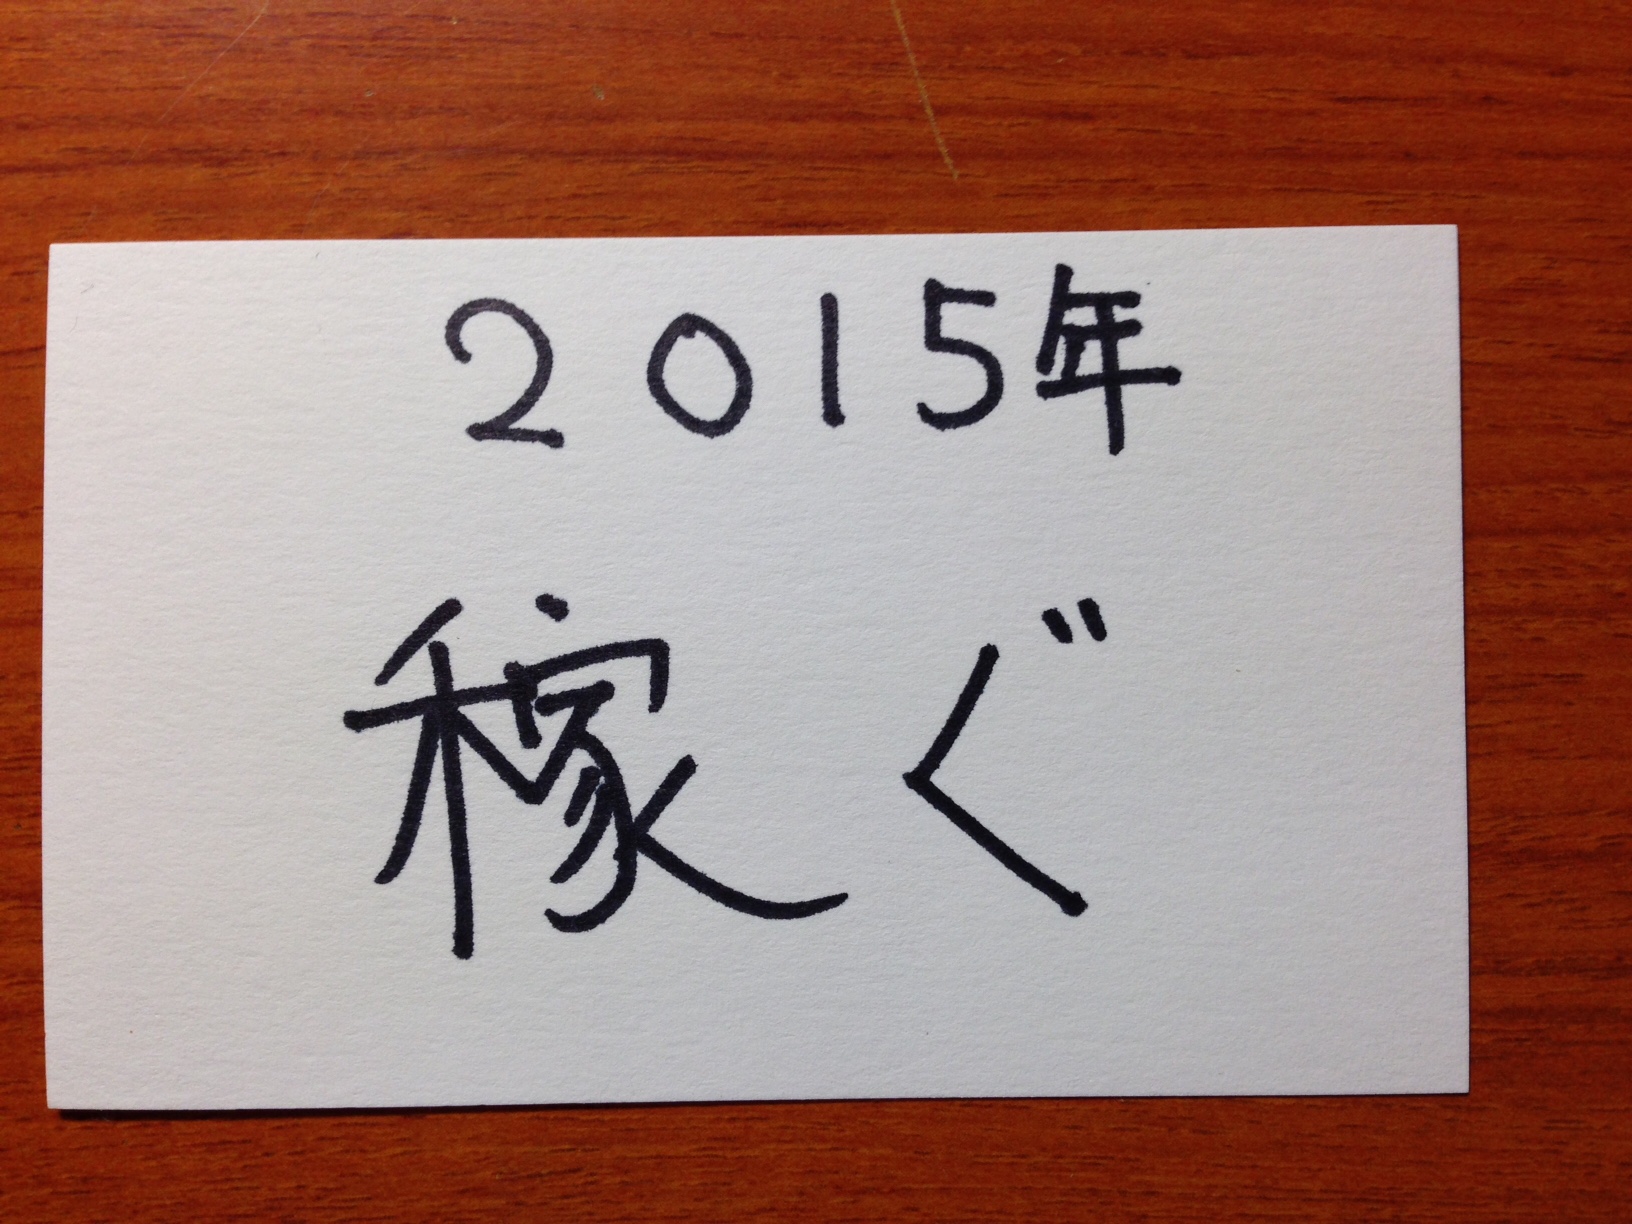 2015年
稼ぐ